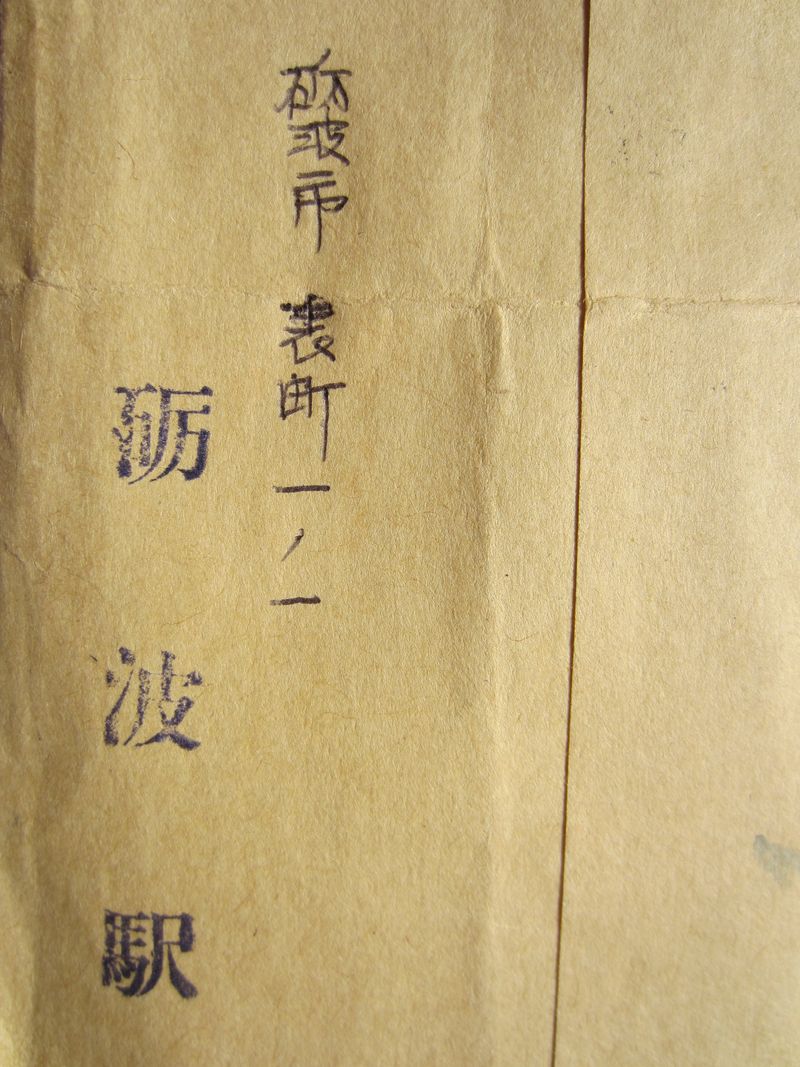 砺波市 表町一ノ一
砺波駅